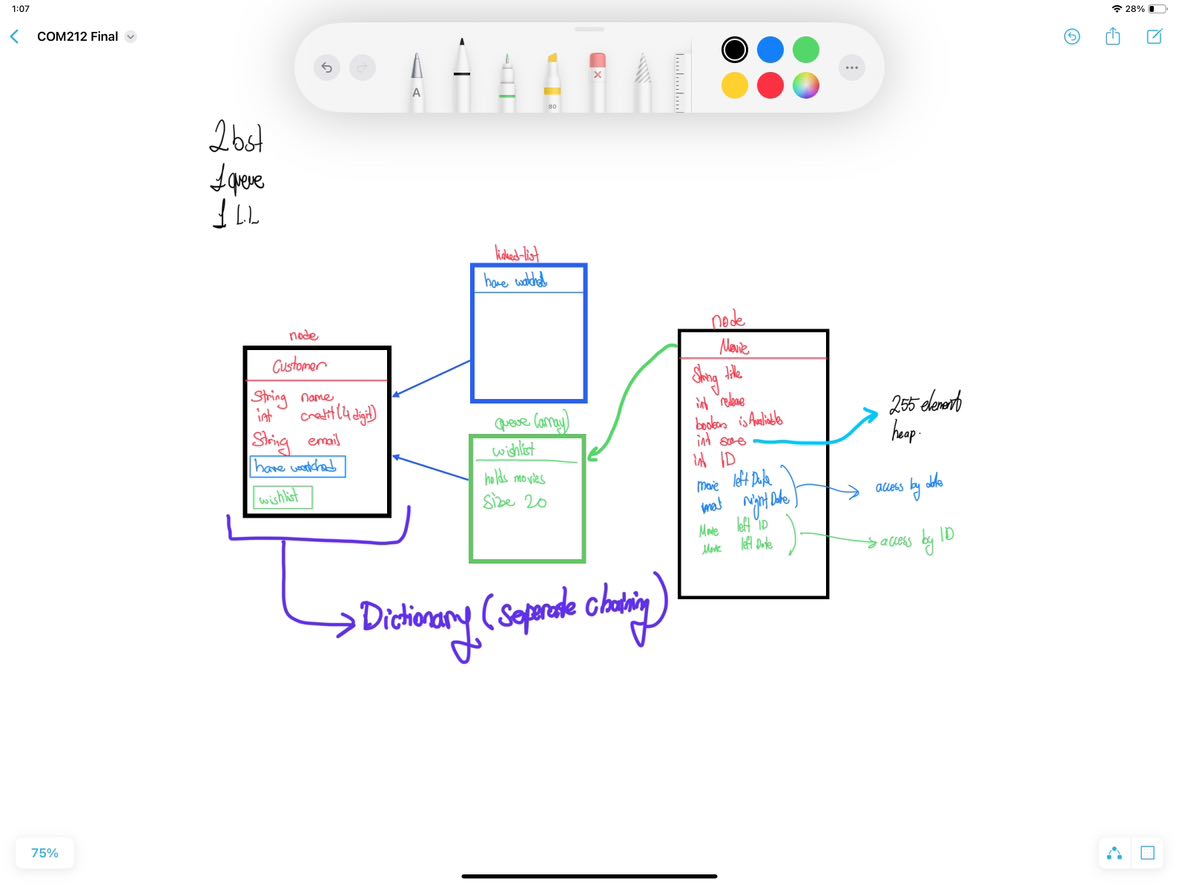 1:07
28%
COM212 Final
A
80
2 bst
1 queue
1 L.L
linked-list
have watched
node
Customer
String name
int credit (4 digit)
String email
have watched
wishlist
queue (array)
wishlist
holds movies
Size 20
node
Movie
String title
int release
boolean isAvailable
int
int ID
left Date
right Date
Movie left ID
Movie left Date
255 element
heap.
access by date
access by ID
Dictionary (Seperate chaining)
75%